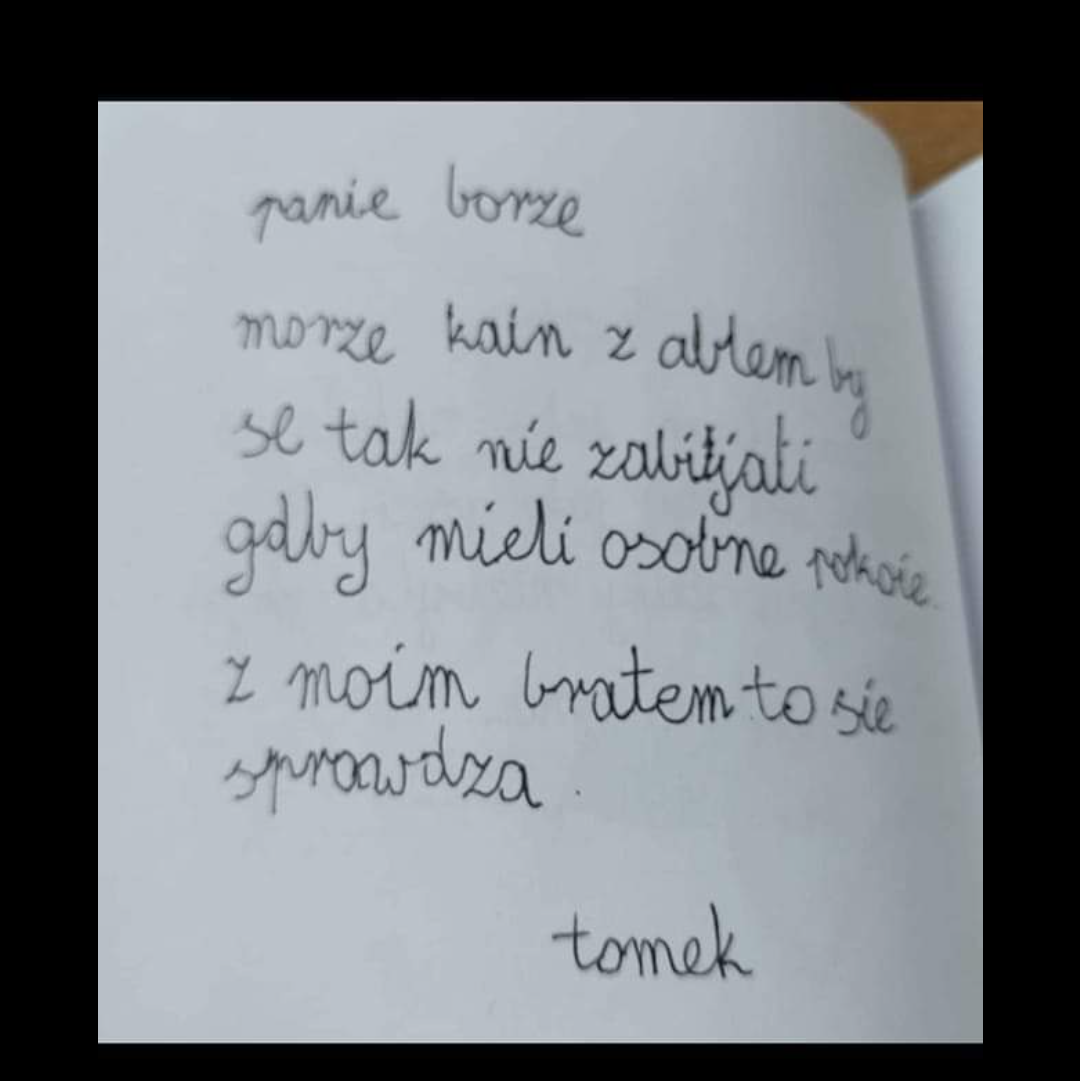 panie borze
morze kain z ablem by
se tak nie zabijali
gdby mieli osobne pokoie.
z moim bratem to sie
sprawdza.
tomek